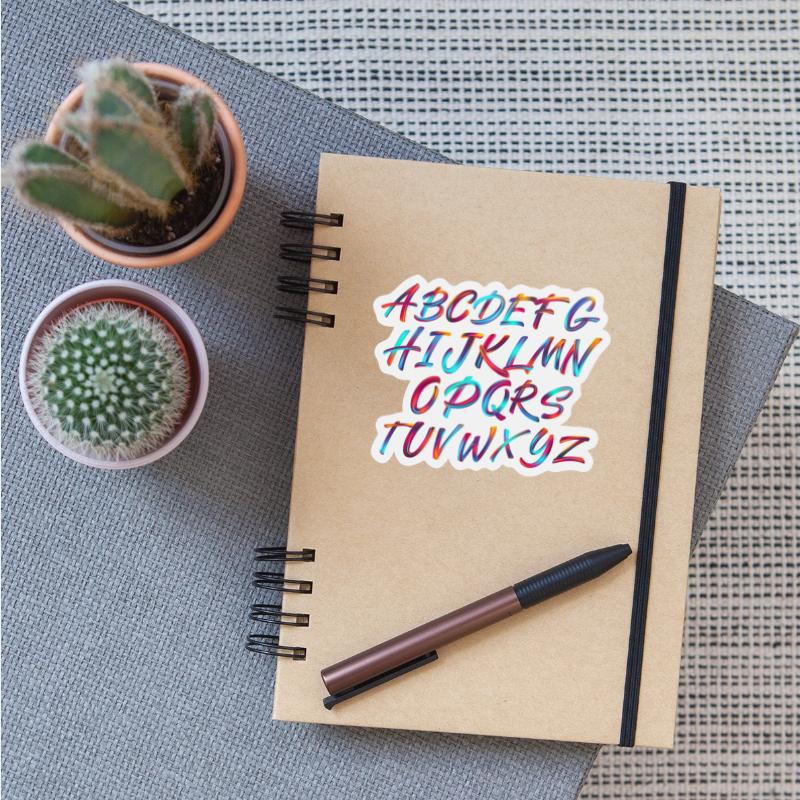 ABCDEFG
HIJKLMN
OPQRS
TUVWXYZ